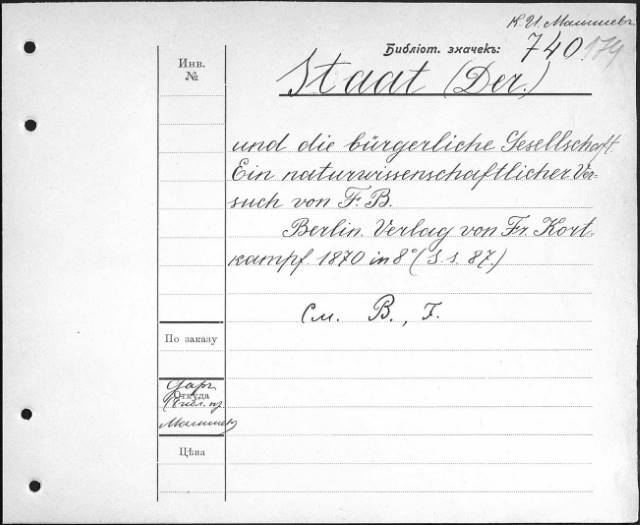 К. И. Малышевъ
Библіот. значекъ: 740 179
Инв.
№
Staat (Der.)
und die bürgerliche Gesellschaft
Ein naturwissenschaftlicher Ver-
such von F. B.
Berlin. Verlag von Fr. Kort-
kampf 1870 in 8° (S.s. 87.)
См. B., F.
По заказу
Откуда
Цѣна